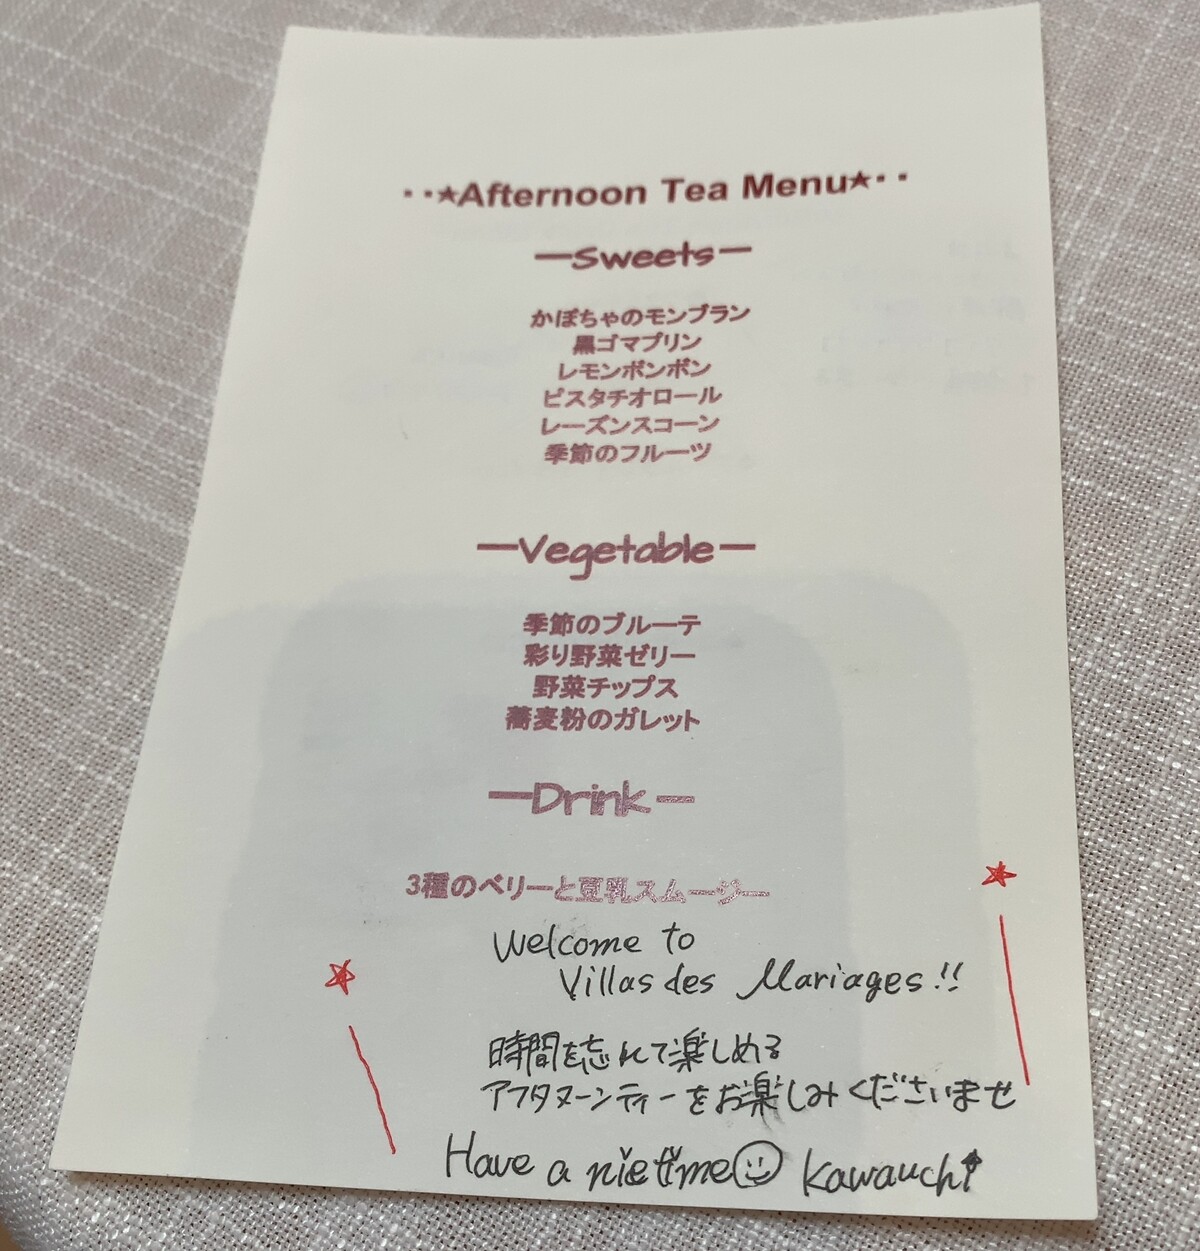 ··★Afternoon Tea Menu★··
ーSweetsー
かぼちゃのモンブラン
黒ゴマプリン
レモンボンボン
ピスタチオロール
レーズンスコーン
季節のフルーツ
ーVegetableー
季節のブルーテ
彩り野菜ゼリー
野菜チップス
蕎麦粉のガレット
ーDrinkー
3種のベリーと豆乳スムージー
Welcome to
Villas des Mariages!!
時間を忘れて楽しめる
アフタヌーンティーをお楽しみくださいませ
Have a nietime☺ Kawauchi